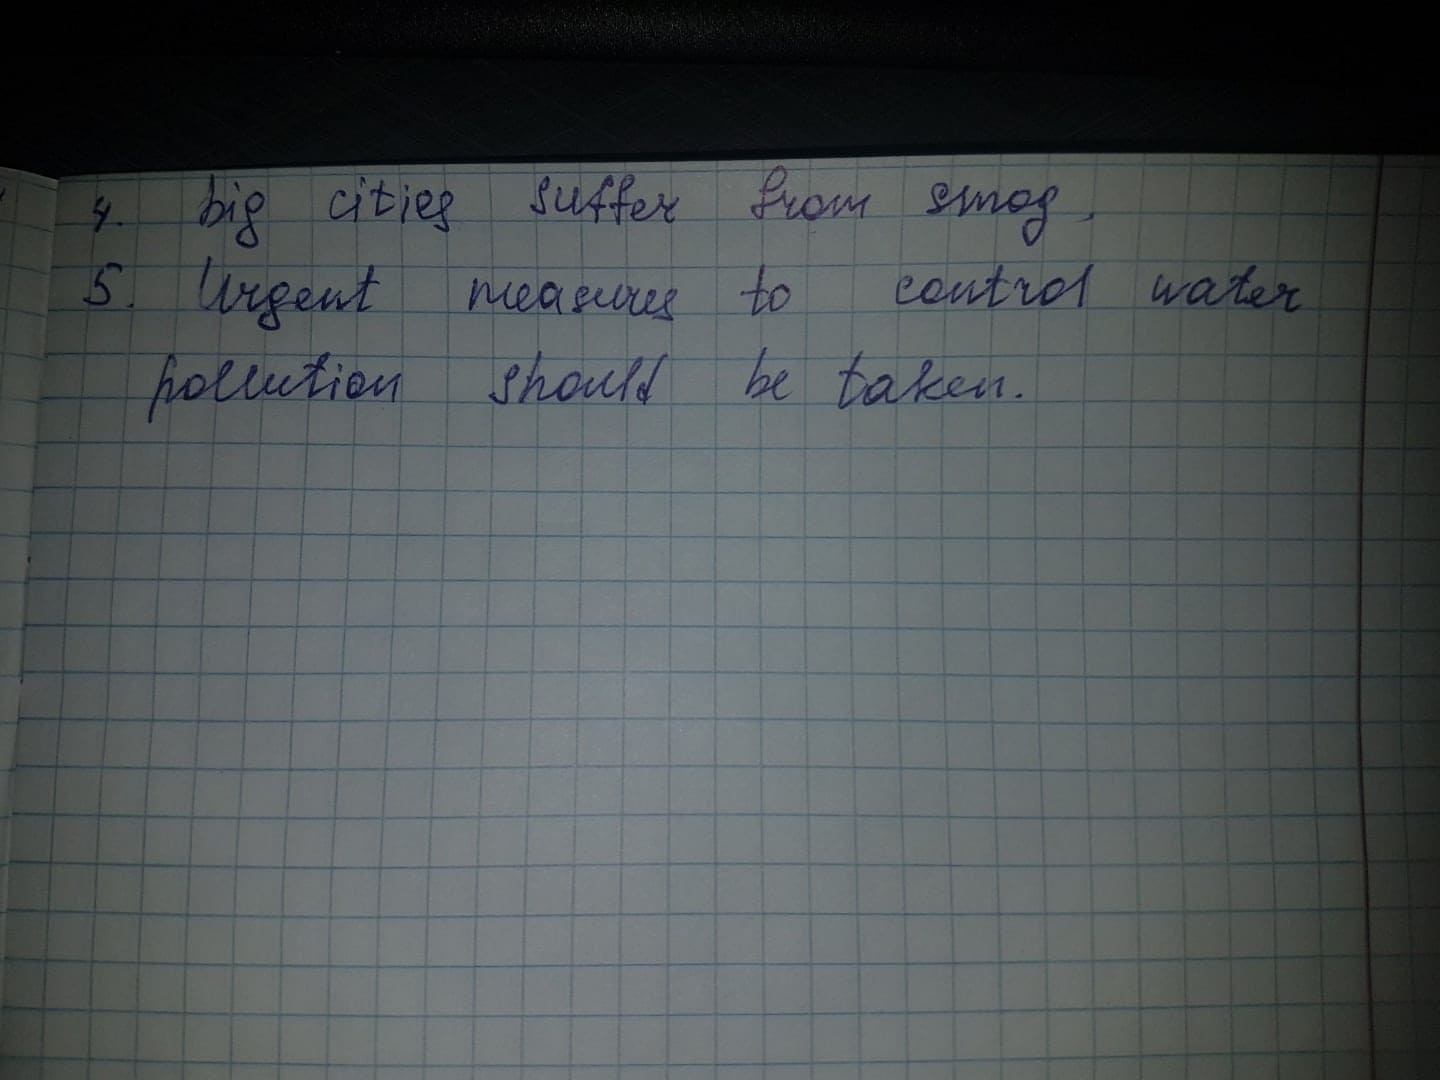 4. big cities suffer from smog.
5. Urgent measures to control water
pollution should be taken.